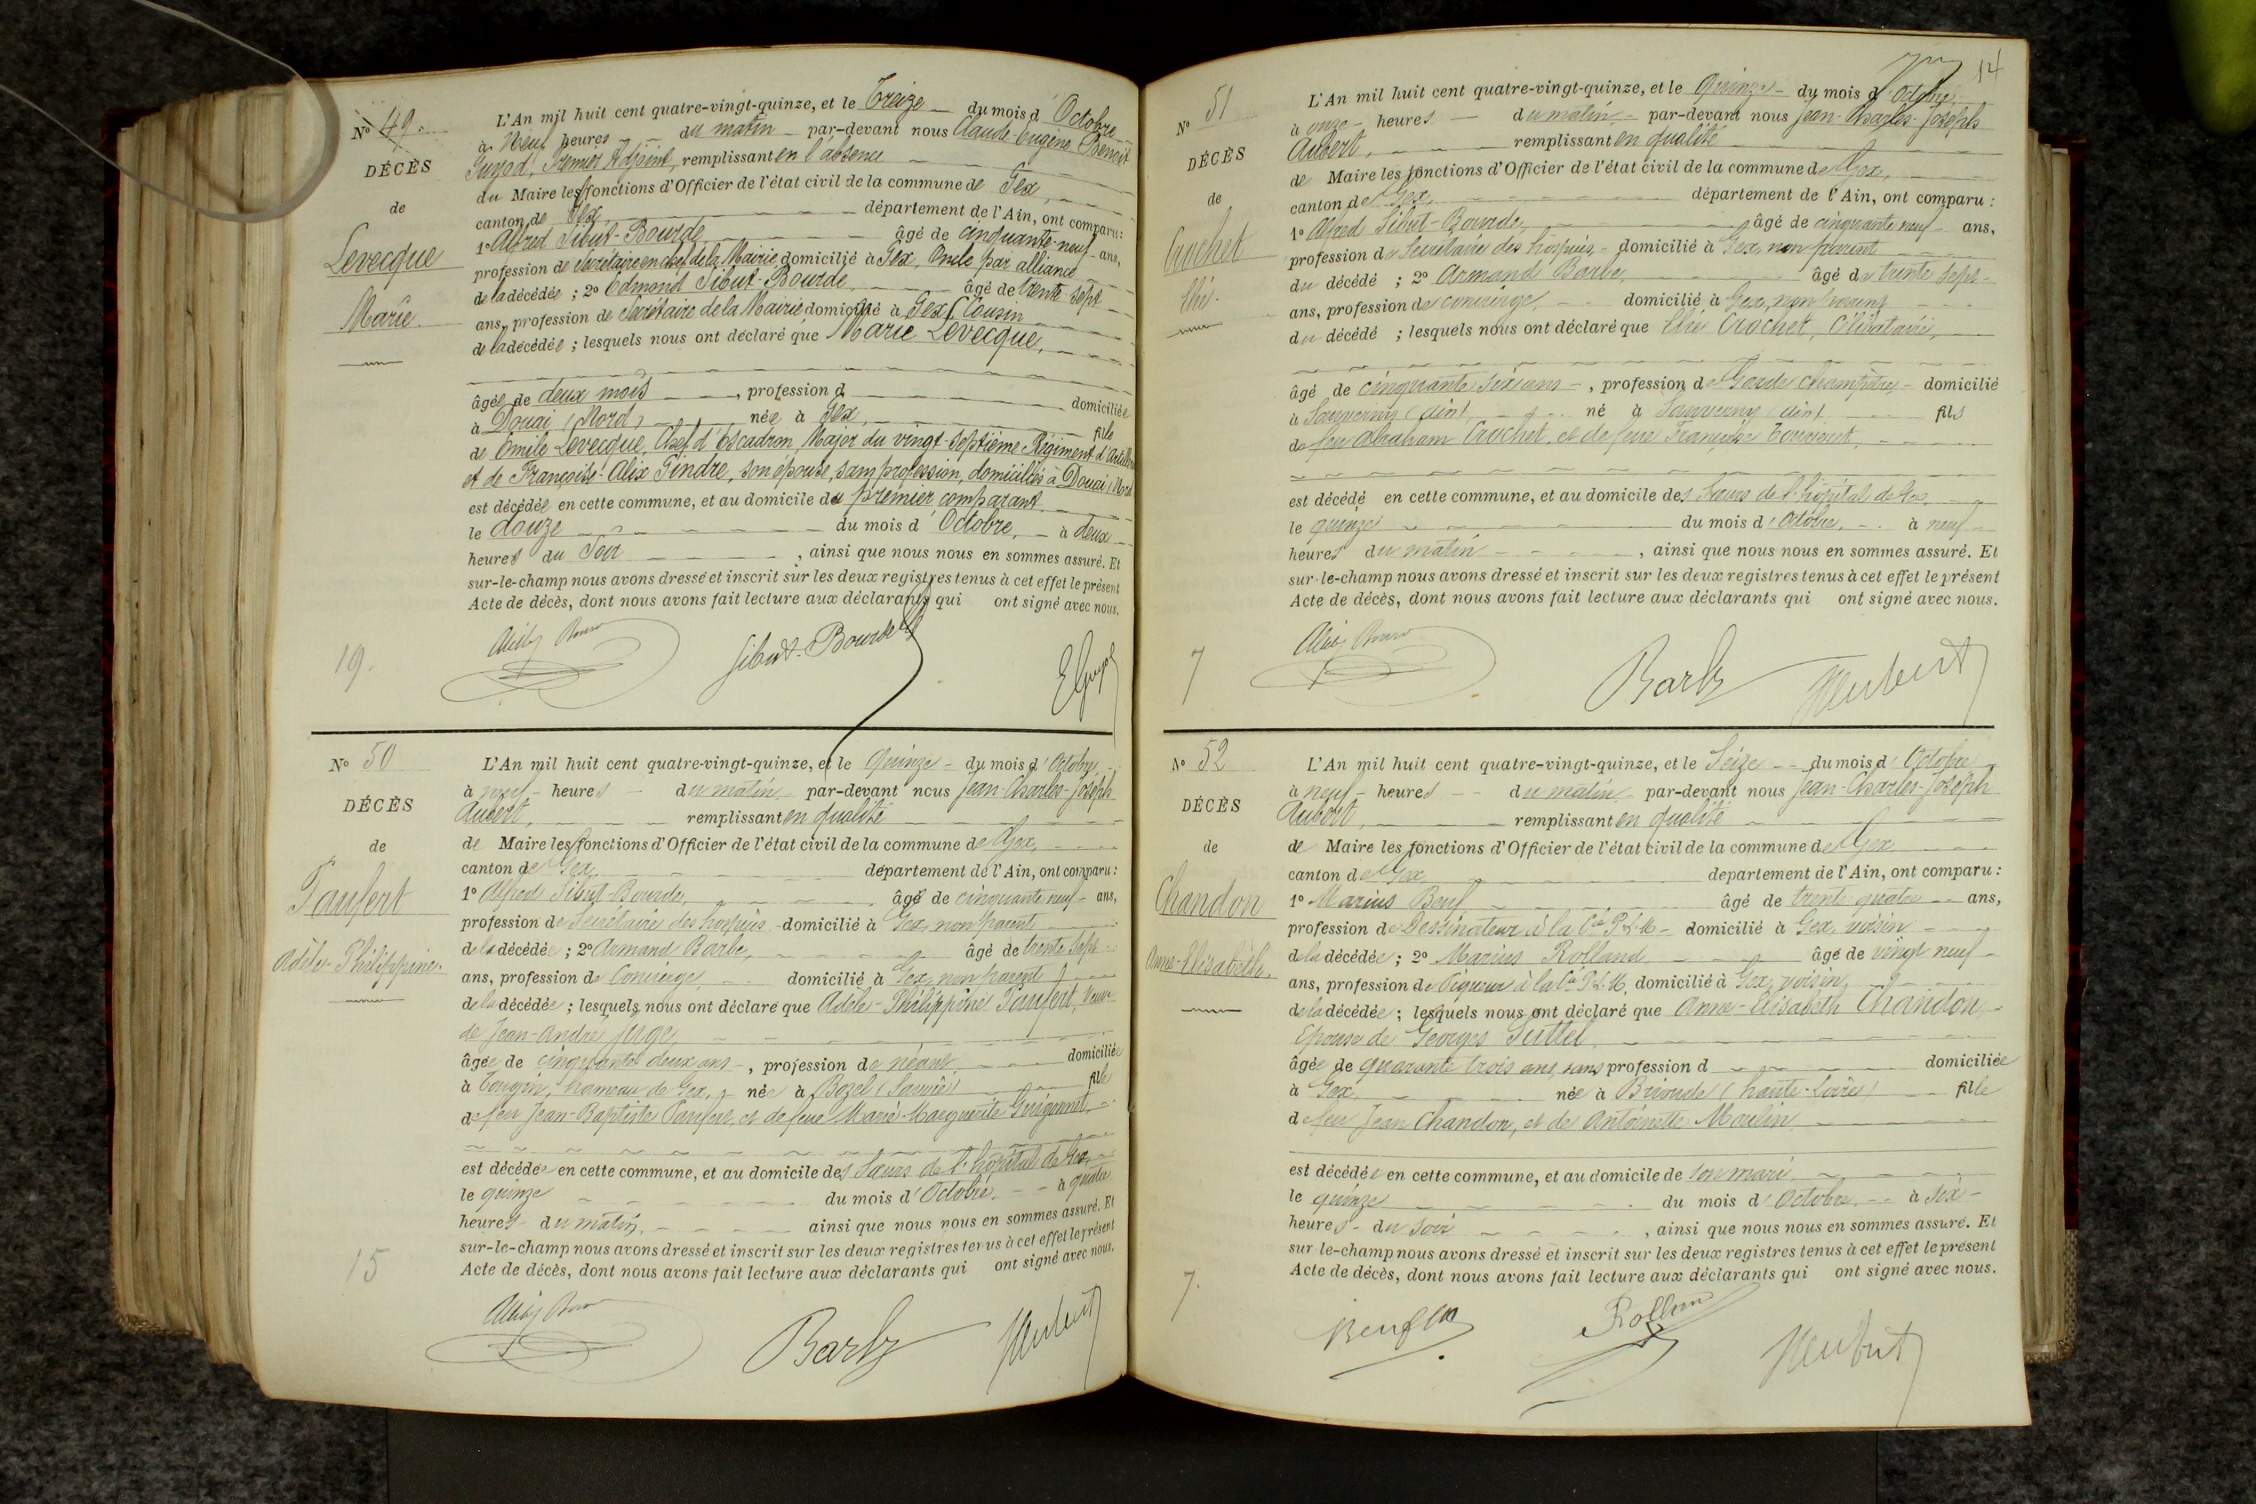 Nº 49.
DÉCÈS
de
Levecque
Marie
L'An mil huit cent quatre-vingt-quinze, et le Treize du mois d'Octobre
à Neuf heures du matin par-devant nous Claude-Eugène Benoit
Guyod, Premier Adjoint, remplissant en l'absence
du Maire les fonctions d'Officier de l'état civil de la commune de Gex,
canton de Gex département de l'Ain, ont comparu :
1º Alfred Sibut-Bourde âgé de cinquante-neuf ans,
profession de Secrétaire en chef de la Mairie domicilié à Gex, Oncle par alliance
de la décédée ; 2º Edmond Sibut-Bourde âgé de trente sept
ans, profession de Secrétaire de la Mairie domicilié à Gex, Cousin
de la décédée ; lesquels nous ont déclaré que Marie Levecque,
âgée de deux mois, profession d domiciliée
à Douai (Nord) née à Gex, fille
de Emile Levecque, Chef d'Escadron, Major du vingt-septième Régiment d'Artillerie
et de Françoise Alix Gindre, son épouse, sans profession, domiciliés à Douai (Nord
est décédée en cette commune, et au domicile du premier comparant
le douze du mois d'Octobre, à deux
heures du Soir, ainsi que nous nous en sommes assuré. Et
sur-le-champ nous avons dressé et inscrit sur les deux registres tenus à cet effet le présent
Acte de décès, dont nous avons fait lecture aux déclarants qui ont signé avec nous.
Sibut-Bourde EGuyod
19.
Nº 50
DÉCÈS
de
Paufert
Adèle-Philippine.
L'An mil huit cent quatre-vingt-quinze, et le Quinze du mois d'Octobre
à neuf heures du matin par-devant nous Jean-Charles-Joseph
Aubert, remplissant en qualité
de Maire les fonctions d'Officier de l'état civil de la commune de Gex,
canton de Gex, département de l'Ain, ont comparu :
1º Alfred Sibut-Bourde, âgé de cinquante neuf ans,
profession de Secrétaire des hospices domicilié à Gex, non parent
de la décédée ; 2º Armand Barbe, âgé de trente sept
ans, profession de Concierge, domicilié à Gex, non parent
de la décédée ; lesquels nous ont déclaré que Adèle-Philippine Paufert, Veuve
de Jean-André Juge,
âgée de cinquante deux ans, profession de néant, domiciliée
à Tougin, hameau de Gex, née à Bozel (Savoie) fille
de feu Jean-Baptiste Paufert, et de feue Marie-Marguerite
est décédée en cette commune, et au domicile des Sœurs de l'hôpital de Gex,
le quinze du mois d'Octobre, à quatre
heures du matin, ainsi que nous nous en sommes assuré. Et
sur-le-champ nous avons dressé et inscrit sur les deux registres tenus à cet effet le présent
Acte de décès, dont nous avons fait lecture aux déclarants qui ont signé avec nous.
Barbe Aubert
15
14
Nº 51
DÉCÈS
de
Crochet
L'An mil huit cent quatre-vingt-quinze, et le Quinze du mois d'Octobre,
à onze heures du matin par-devant nous Jean-Charles-Joseph
Aubert, remplissant en qualité
de Maire les fonctions d'Officier de l'état civil de la commune de Gex,
canton de Gex, département de l'Ain, ont comparu :
1º Alfred Sibut-Bourde, âgé de cinquante neuf ans,
profession de Secrétaire des hospices, domicilié à Gex, non parent
du décédé ; 2º Armand Barbe, âgé de trente sept
ans, profession de concierge, domicilié à Gex, non parent
du décédé ; lesquels nous ont déclaré que Crochet, Célibataire,
âgé de cinquante six ans, profession de Garde champêtre, domicilié
à Sauverny (Ain), né à Sauverny (Ain) fils
de feu Abraham Crochet, et de feue Françoise
est décédé en cette commune, et au domicile des Sœurs de l'hôpital de Gex,
le quinze du mois d'Octobre, à neuf
heures du matin, ainsi que nous nous en sommes assuré. Et
sur-le-champ nous avons dressé et inscrit sur les deux registres tenus à cet effet le présent
Acte de décès, dont nous avons fait lecture aux déclarants qui ont signé avec nous.
Barbe Aubert
7
Nº 52
DÉCÈS
de
Chandon
Anne-Elisabeth.
L'An mil huit cent quatre-vingt-quinze, et le Seize du mois d'Octobre
à neuf heures du matin par-devant nous Jean-Charles-Joseph
Aubert, remplissant en qualité
de Maire les fonctions d'Officier de l'état civil de la commune de Gex
canton de Gex département de l'Ain, ont comparu :
1º Marius Beuf âgé de trente quatre ans,
profession de Dessinateur à la Cie P.L.M. domicilié à Gex, voisin
de la décédée ; 2º Marius Rolland âgé de vingt neuf
ans, profession de Piqueur à la Cie P.L.M. domicilié à Gex, voisin,
de la décédée ; lesquels nous ont déclaré que Anne-Elisabeth Chandon,
Epouse de Georges
âgée de quarante trois ans, sans profession d domiciliée
à Gex, née à Brioude (haute-Loire) fille
de feu Jean Chandon, et de Antoinette Moulin
est décédée en cette commune, et au domicile de son mari
le quinze du mois d'Octobre à six
heures du soir, ainsi que nous nous en sommes assuré. Et
sur le-champ nous avons dressé et inscrit sur les deux registres tenus à cet effet le présent
Acte de décès, dont nous avons fait lecture aux déclarants qui ont signé avec nous.
Beuf Rolland Aubert
7.